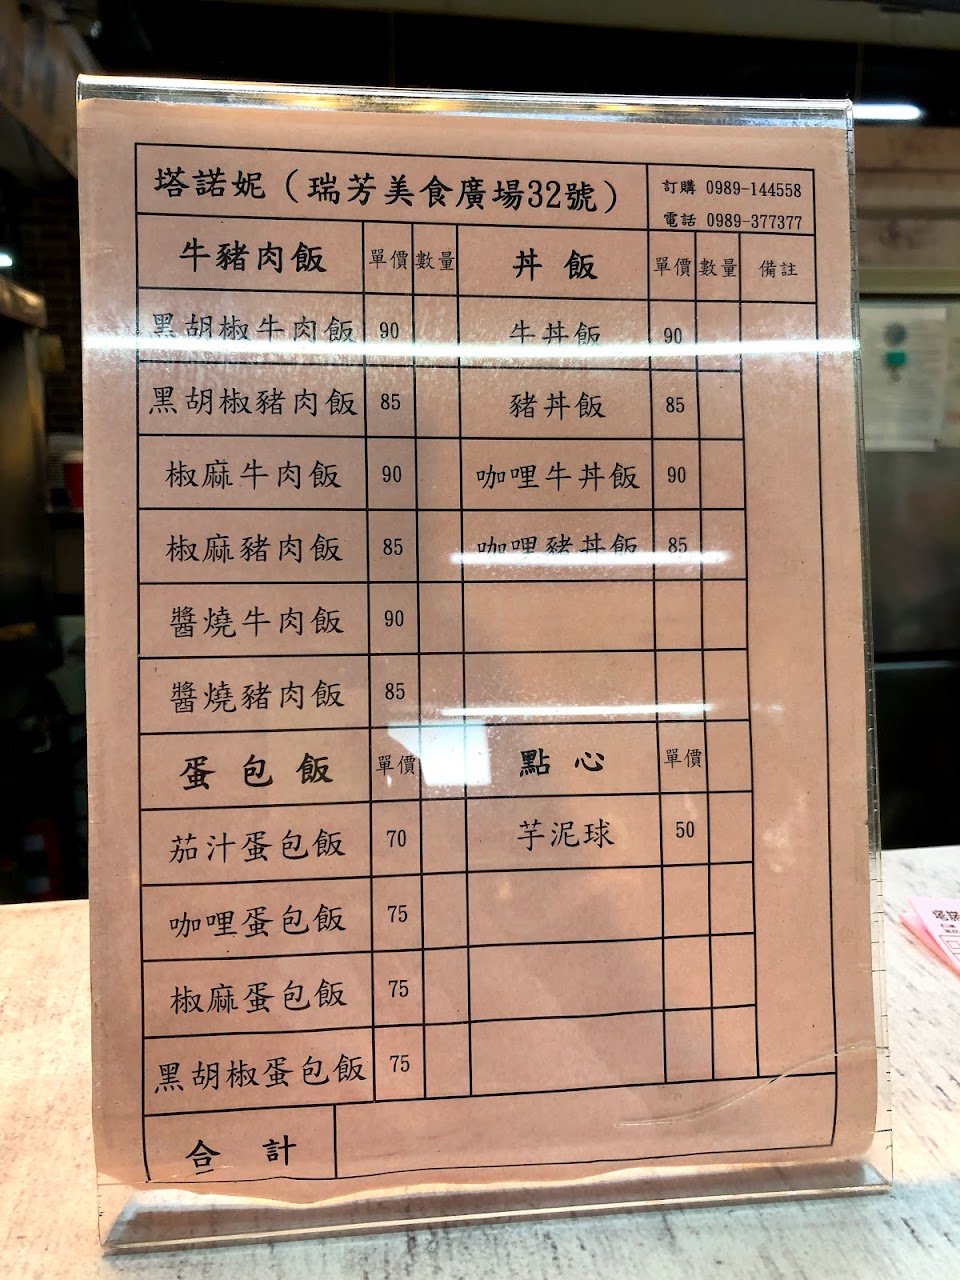 塔諾妮（瑞芳美食廣場32號）
訂購 0989-144558
電話 0989-377377
牛豬肉飯 單價 數量 丼飯 單價 數量 備註
黑胡椒牛肉飯 90 牛丼飯 90
黑胡椒豬肉飯 85 豬丼飯 85
椒麻牛肉飯 90 咖哩牛丼飯 90
椒麻豬肉飯 85 咖哩豬丼飯 85
醬燒牛肉飯 90
醬燒豬肉飯 85
蛋包飯 單價 點心 單價
茄汁蛋包飯 70 芋泥球 50
咖哩蛋包飯 75
椒麻蛋包飯 75
黑胡椒蛋包飯 75
合計